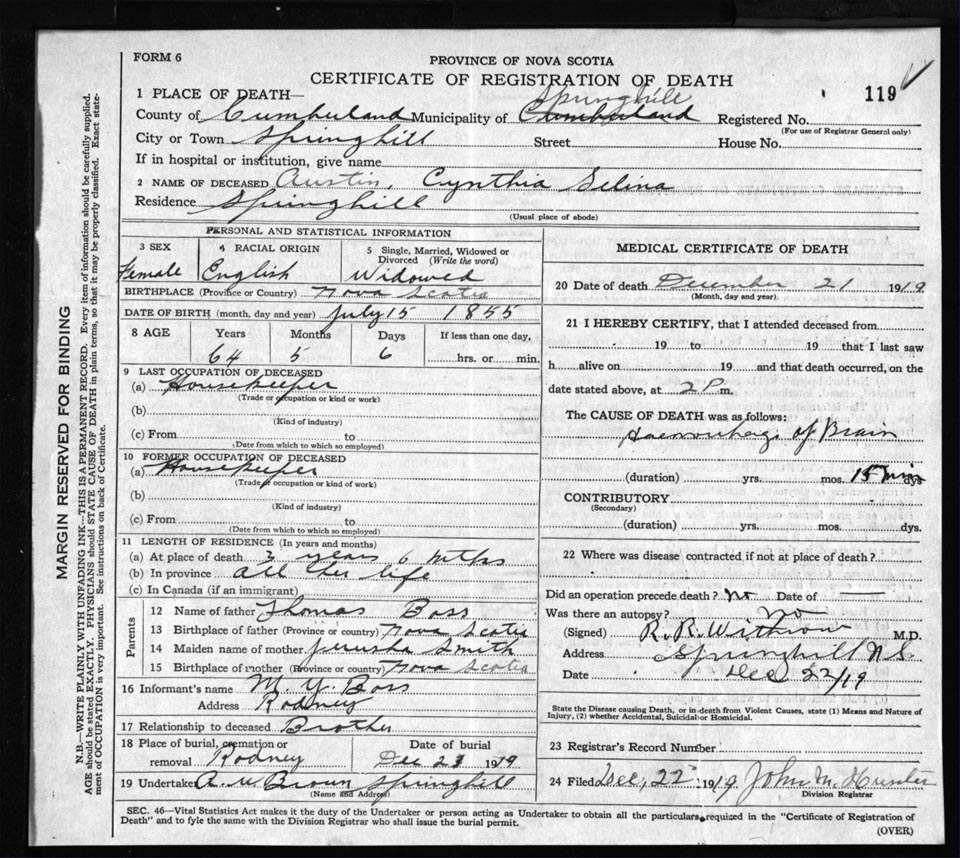 FORM 6
PROVINCE OF NOVA SCOTIA
CERTIFICATE OF REGISTRATION OF DEATH
119
1 PLACE OF DEATH—
Springhill
County of Cumberland Municipality of Cumberland Registered No.
(For use of Registrar General only)
City or Town Springhill Street House No.
If in hospital or institution, give name
2 NAME OF DECEASED Austin, Cynthia Selina
Residence Springhill
(Usual place of abode)
PERSONAL AND STATISTICAL INFORMATION
3 SEX 4 RACIAL ORIGIN 5 Single, Married, Widowed or Divorced (Write the word)
Female English Widowed
BIRTHPLACE (Province or Country) Nova Scotia
DATE OF BIRTH (month, day and year) July 15 1855
8 AGE Years Months Days If less than one day,
64 5 6 hrs. or min.
9 LAST OCCUPATION OF DECEASED
(a) Housekeeper
(Trade or occupation or kind or work)
(b)
(Kind of industry)
(c) From to
(Date from which to which so employed)
10 FORMER OCCUPATION OF DECEASED
(a) Housekeeper
(Trade or occupation or kind or work)
(b)
(Kind of industry)
(c) From to
(Date from which to which so employed)
11 LENGTH OF RESIDENCE (In years and months)
(a) At place of death 3 years 6 mths
(b) In province all her life
(c) In Canada (if an immigrant)
Parents
12 Name of father Thomas Boss
13 Birthplace of father (Province or country) Nova Scotia
14 Maiden name of mother Jerusha Smith
15 Birthplace of mother (Province or country) Nova Scotia
16 Informant's name M. Y. Boss
Address Rodney
17 Relationship to deceased Brother
18 Place of burial, cremation or removal Rodney Date of burial Dec 23 1919
19 Undertaker A. W. Brown Springhill
(Name and Address)
MEDICAL CERTIFICATE OF DEATH
20 Date of death December 21 1919
(Month, day and year)
21 I HEREBY CERTIFY, that I attended deceased from
19 to 19 that I last saw
h alive on 19 and that death occurred, on the
date stated above, at 2 P m.
The CAUSE OF DEATH was as follows:
Haemorrhage of Brain
(duration) yrs. mos. 15 min dys.
CONTRIBUTORY
(Secondary)
(duration) yrs. mos. dys.
22 Where was disease contracted if not at place of death?
Did an operation precede death? No Date of —
Was there an autopsy? no
(Signed) R. R. Withrow M.D.
Address Springhill N.S.
Date Dec 22/19
State the Disease causing Death, or in death from Violent Causes, state (1) Means and Nature of Injury, (2) whether Accidental, Suicidal or Homicidal.
23 Registrar's Record Number
24 Filed Dec, 22 1919 John M. Hunter
Division Registrar
SEC. 46—Vital Statistics Act makes it the duty of the Undertaker or person acting as Undertaker to obtain all the particulars required in the "Certificate of Registration of
Death" and to fyle the same with the Division Registrar who shall issue the burial permit.
(OVER)
MARGIN RESERVED FOR BINDING
N.B.—WRITE PLAINLY WITH UNFADING INK—THIS IS A PERMANENT RECORD. Every item of information should be carefully supplied.
AGE should be stated EXACTLY. PHYSICIANS should STATE CAUSE OF DEATH in plain terms, so that it may be properly classified. Exact statement
of OCCUPATION is very important. See instructions on back of Certificate.